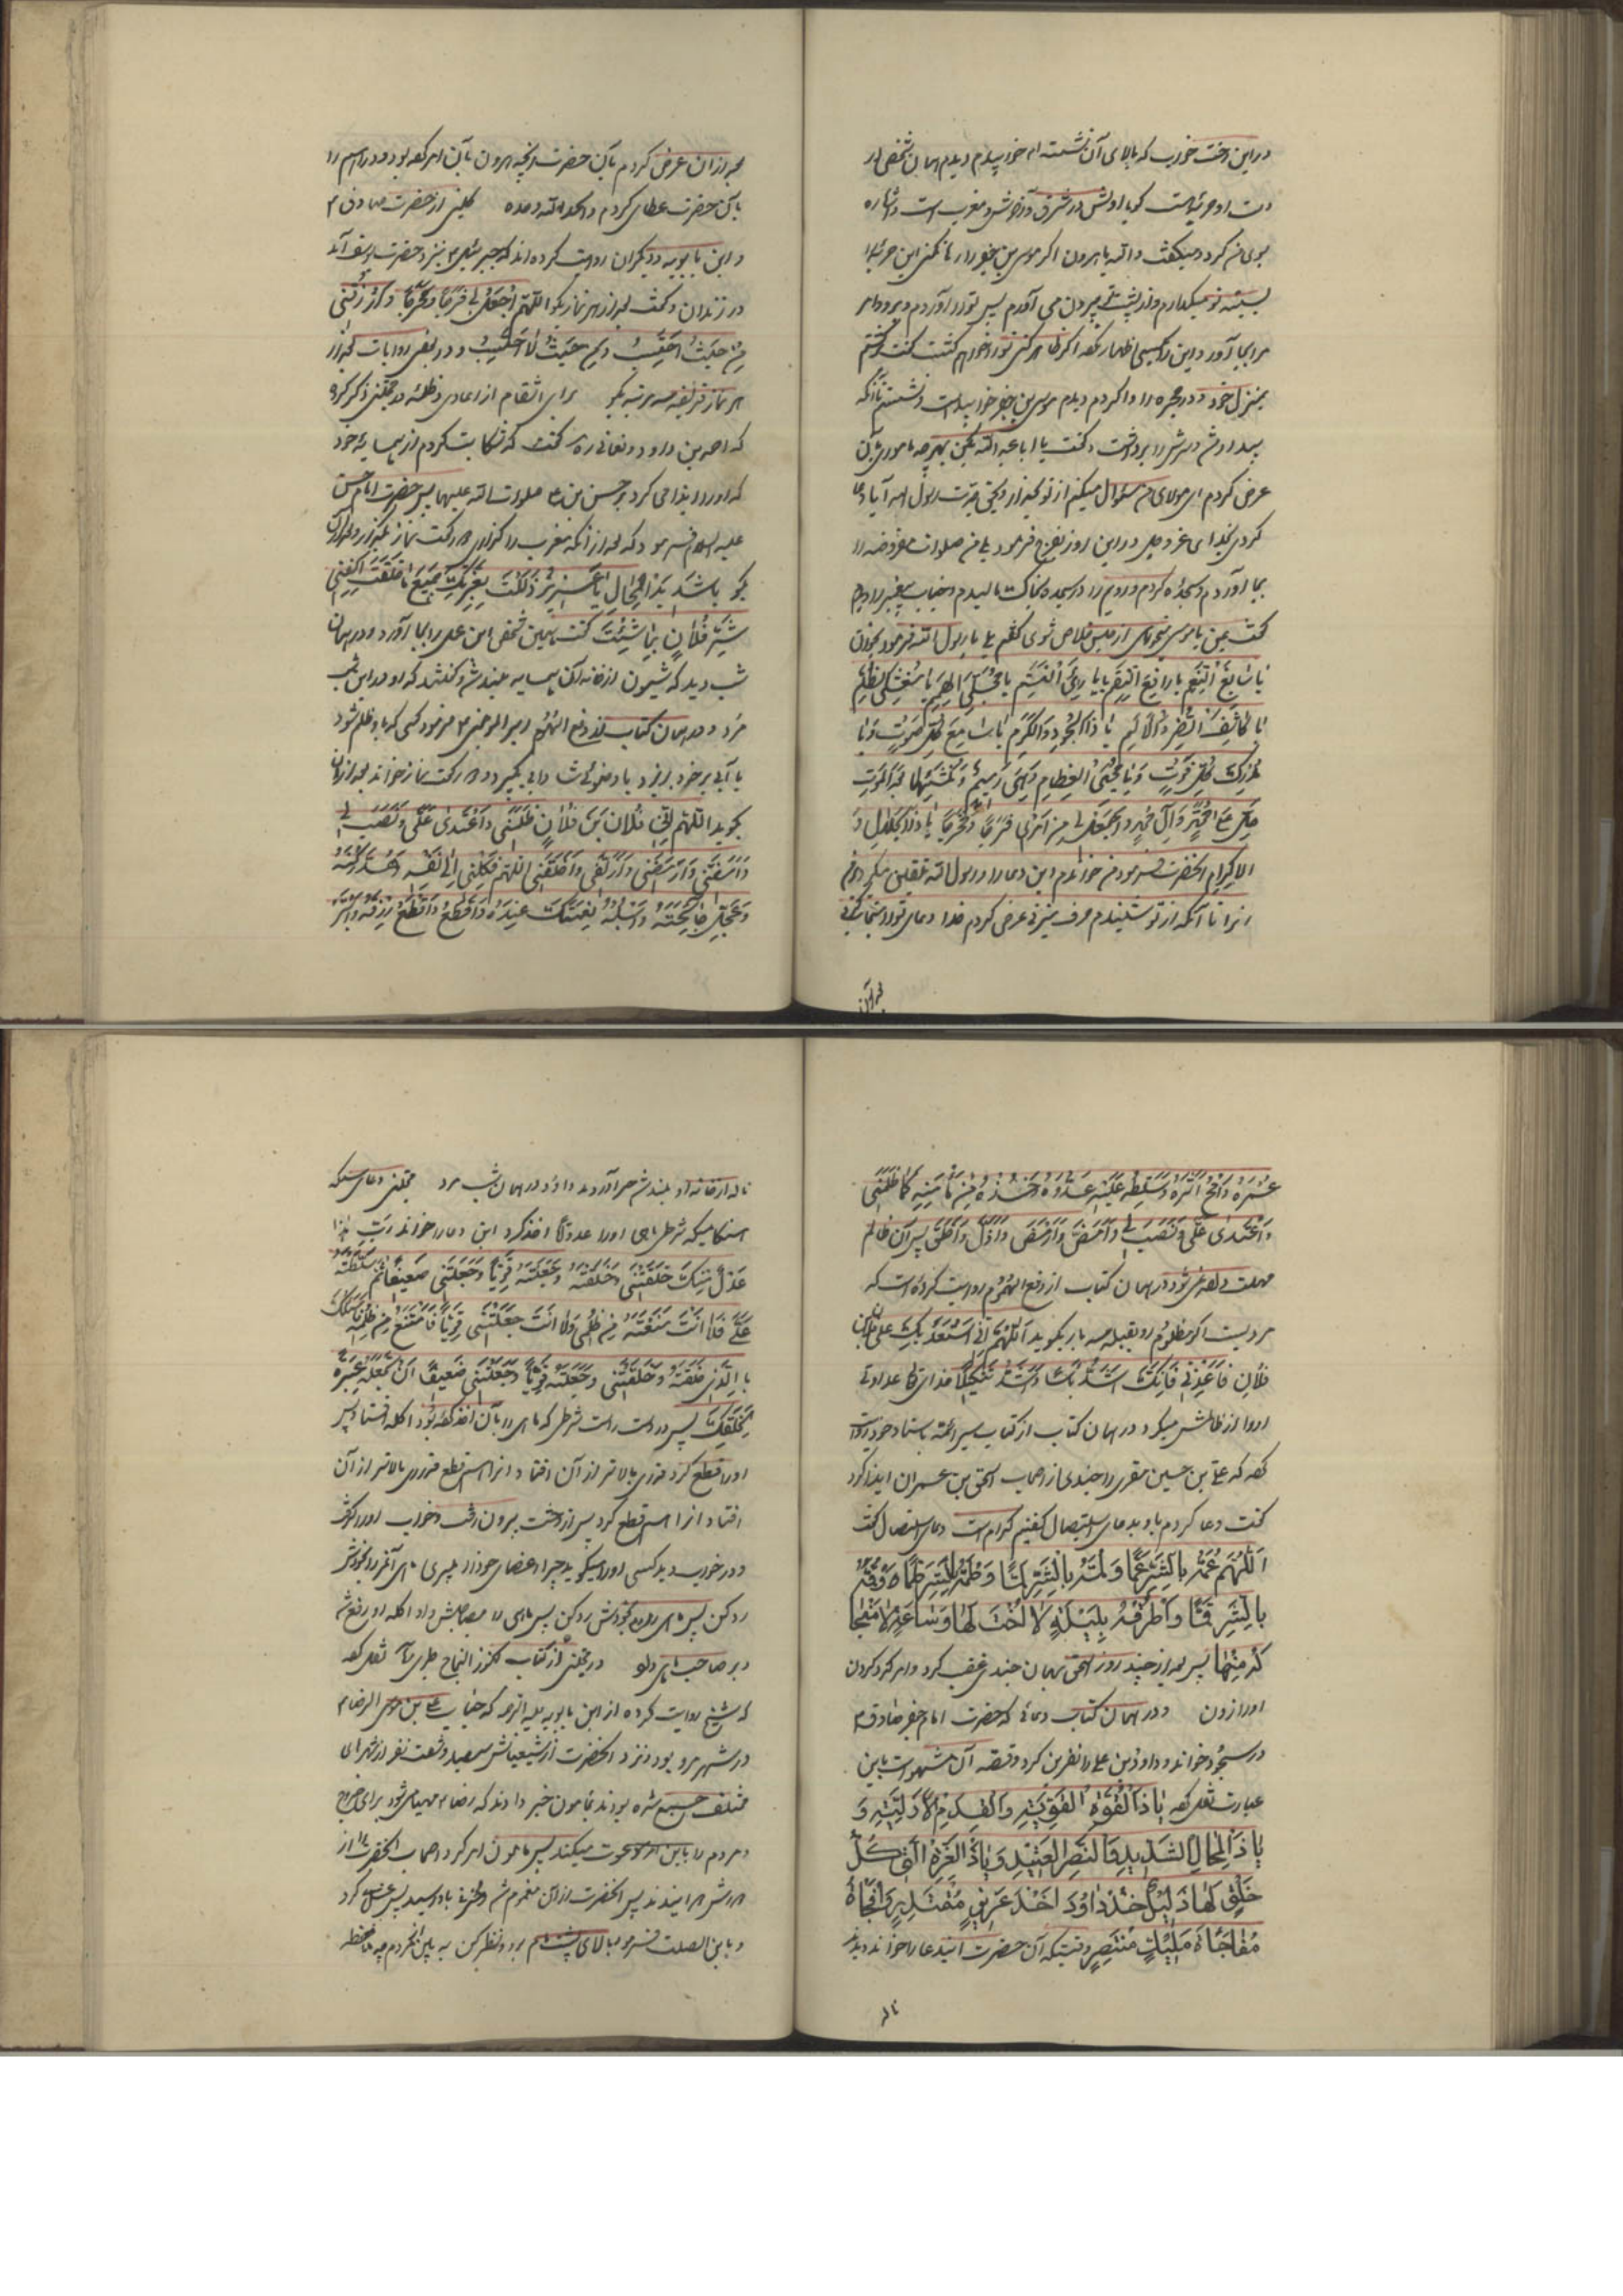 دراین رخت خواب که بالای آن نشسته ام خوابیدم دیدم همان شخص در
دست او حربه ایست کویا اولش در مشرق و آخرش در مغرب است و اشاره
بسوی من کرد و میکفت والله یا هرون اکر موسی بن جعفر را رها نکنی این حربه را
بسینه تو میکذارم و از پشت تو بیرون می آورم پس تو را
را بجا آور و این را بکسی اظهار نکن اکر ظاهر کنی تو را خواهم کشت
بمنزل خود و در حجره را وا کردم دیدم موسی بن جعفر خوابیده است
بیدار شد و سرش را برداشت و کفت یا ابا عبد الله بکن بهرچه ماموری بآن
عرض کردم ای مولای من سؤال میکنم از تو بحق جدت رسول الله آیا دعا
کردی خدای عز و جل در این روز بفرج فرمود بلی من صلوات مفروضه را
بجا آوردم و سجده کردم و رویم را در سجده بخاک مالیدم و جناب پیغمبر را دیدم
کفت بمن یا موسی میخواهی از حبس خلاص شوی کفتم بلی یا رسول الله فرمود بخوان
یا سابِغَ النِّعَمِ یا دافِعَ النِّقَمِ یا بارِئَ النَّسَمِ یا مُجَلِّیَ الهِمَمِ یا مُغْشِیَ الظُّلَمِ
یا کاشِفَ الضُّرِّ وَالأَلَمِ یا ذَا الجُودِ وَالکَرَمِ یا سامِعَ کُلِّ صَوْتٍ وَیا
مُدْرِکَ کُلِّ فَوْتٍ وَیا مُحْیِیَ العِظامِ وَهِیَ رَمیمٌ وَمُنْشِئَها بَعْدَ المَوْتِ
صَلِّ عَلی مُحَمَّدٍ وَآلِ مُحَمَّدٍ وَاجْعَلْ لی مِنْ أَمْری فَرَجاً وَمَخْرَجاً یا ذَا الجَلالِ وَ
الاِکرامِ آنحضرت فرمود من خواندم این دعا را و رسول الله تلقین میکرد
آنرا تا آنکه از تو شنیدم حرف میزنی عرض کردم خدا دعای تو را مستجاب
بعد از آن
بعد از آن عرض کردم بآن حضرت آنچه هرون بآن امر کرده بود و دراهم را
بآن حضرت عطا کردم والحمد لله وحده   کلینی از حضرت صادق م
و ابن بابویه و دیکران روایت کرده اند که جبرئیل م بنزد حضرت یوسف آمد
در زندان و کفت بعد از هر نماز بکو اللّهُمَّ اجْعَلْ لی فَرَجاً وَمَخْرَجاً وَارْزُقْنی
مِنْ حَیْثُ أَحْتَسِبُ وَمِنْ حَیْثُ لا أَحْتَسِبُ و در بعض روایات بعد از
هر نماز فریضه سه مرتبه بکو   برای انتقام از اعادی و ظلمه در مجتنی ذکر کرده
که احمد بن داود نعمانی ره کفت که شکایت کردم از همسایه خود
که او را ایذا می کرد بحسن بن علی صلوات الله علیهما پس حضرت امام حسن
علیه السلام فرمود که بعد از آنکه مغرب را کزاردی دو رکعت نماز بکزار و بعد از آن
بکو یا شَدیدَ المِحالِ یا عَزیزُ ذَلَّلْتَ بِعِزَّتِکَ جَمیعَ ما خَلَقْتَ اکْفِنی
شَرَّ فُلانٍ بِما شِئْتَ کفت همین شخص این عمل را بجا آورد و در همان
شب دید که شیون از خانه آن همسایه بلند شد و کفتند که او در این شب
مرد و در همان کتاب از دفع الهموم امیر المؤمنین م فرمود کسی که باو ظلم شود
با آبی بر خود بریزد یا وضوئی شادابی بکیرد و دو رکعت نماز خواند بعد از آن
بکوید اللّهُمَّ إِنَّ فُلانَ بْنَ فُلانٍ ظَلَمَنی وَاعْتَدی عَلَیَّ وَنَصَبَ لی
وَأَمَضَّنی وَأَرْمَضَنی وَأَذَلَّنی وَأَخْلَقَنی اللّهُمَّ فَکِلْهُ إِلی نَفْسِهِ وَهُدَّ رُکْنَهُ
وَعَجِّلْ جائِحَتَهُ وَاسْلُبْهُ نِعْمَتَکَ عِنْدَهُ وَاقْطَعْ رِزْقَهُ وَابْتُرْ
عُمُرَهُ وَامْحُ أَثَرَهُ وَسَلِّطْ عَلَیْهِ عَدُوَّهُ وَخُذْهُ مِنْ مَأْمَنِهِ کَما ظَلَمَنی
وَاعْتَدی عَلَیَّ وَنَصَبَ لی وَأَمَضَّ وَأَرْمَضَ وَأَذَلَّ وَأَخْلَقَ پس آن ظالم
مهلت داده نمی شود در همان کتاب از دفع الهموم روایت کرده است که
مردیست اکر مظلوم رو بقبله سه بار بکوید اللّهُمَّ إِنّی أَسْتَعْدیکَ عَلی فلان بن
فُلانٍ فَأَعْدِنی فَإِنَّکَ أَشَدُّ بَأْساً وَأَشَدُّ تَنْکیلاً خدای تعالی
او را از ظالمش میکیرد در همان کتاب از کتاب سیر الائمة باسناد خود روایت
کرده که علی بن حسین مقری را جندی از اصحاب اسحق بن عمران ایذا کرد
کفت دعا کردم باو بدعای استیصال کفتیم کدام است دعای استیصال کفت
اَللّهُمَّ عُمَّهُ بِالشَّرِّ عَمّاً وَلُمَّهُ بِالشَّرِّ لَمّاً وَطُمَّهُ بِالشَّرِّ طَمّاً وَقُمَّهُ
بِالشَّرِّ قَمّاً وَاطْرُقْهُ بِلَیْلَةٍ لا أُخْتَ لَها وَساعَةٍ لا مَنْجا
لَهُ مِنْها پس بعد از چند روز اسحق بهمان جندی غضب کرد و امر کرد کردن
او را زدن   و در همان کتاب دعائی که حضرت امام جعفر صادق م
در سجود خواند و داود بن علی را نفرین کرد و قصه آن مشهور است باین
عبارت نقل کرده یا ذَا القُوَّةِ القَوِیَّةِ وَالقِدَمِ الأَزَلِیَّةِ وَ
یا ذَا المِحالِ الشَّدیدِ وَالنَّصْرِ العَتیدِ وَیا ذَا العِزَّةِ الَّتی کُلُّ
خَلْقٍ لَها ذَلیلٌ خُذْ داوُدَ أَخْذَ عَزیزٍ مُقْتَدِرٍ وَافْجَأْهُ
مُفاجَأَةَ مَلیکٍ مُنْتَصِرٍ وقتیکه آن حضرت ایندعا را خواند دیدند
ناله
ناله از خانه او بلند شد خبر آوردند داود در همان شب مرد   مجتنی دعای سمکه
هنکامیکه شرطی ماهی او را عدواناً اخذ کرد این دعا را خواند رَبِّ هذا
عَدْلٌ مِنْکَ خَلَقْتَنی وَخَلَقْتَهُ وَجَعَلْتَهُ قَوِیّاً وَجَعَلْتَنی ضَعیفاً ثُمَّ سَلَّطْتَهُ
عَلَیَّ فَلا أَنْتَ مَنَعْتَهُ مِنْ ظُلْمی وَلا أَنْتَ جَعَلْتَنی قَوِیّاً فَأَمْتَنِعَ مِنْ ظُلْمِهِ فَأَسْئَلُکَ
بِالَّذی خَلَقْتَهُ وَخَلَقْتَنی وَجَعَلْتَهُ قَوِیّاً وَجَعَلْتَنی ضَعیفاً أَنْ تَجْعَلَهُ عِبْرَةً
لِخَلْقِکَ پس در دست راست شرطی که ماهی را بآن اخذ کرده بود آکله افتاد پس
او را قطع کرد قدری بالاتر از آن افتاد و آنرا هم قطع قدری بالاتر از آن
افتاد آنرا هم قطع کرد پس از دشت بیرون رفت و خواب او را کرفت
و در خواب دید کسی او را میکوید چرا اعضای خود را میبری ماهی آنمرد را بخودش
رد کن پس ماهی را بخودش رد کن پس ماهی را بصاحبش داد آکله او رفع شد
در مجتنی از کتاب کنوز النجاح طبرسی نقل کرده
که شیخ روایت کرده از ابن بابویه علیه الرحمه که جناب علی بن موسی الرضا م
در شهر مرو بود و نزد آنحضرت از شیعیانش سیصد و شصت نفر از شهرهای
مختلف جمع شده بودند بمأمون خبر دادند که رضا م مهیا می شود برای خروج
و مردم را باین امر دعوت میکند پس مأمون امر کرد اصحاب آنحضرت را از
درش برانیدند پس آنحضرت از آن مغموم شد و حزنی باو رسید پس غسل کرد
و بابی الصلت فرمود ببالای پشت بام برو و نظر کن